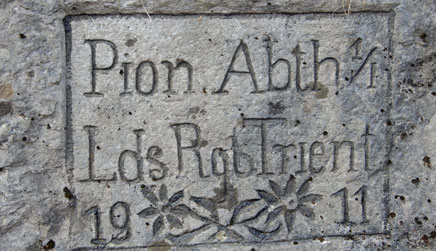 Pion Abth 1/1
Lds Rgt Trient
19 11